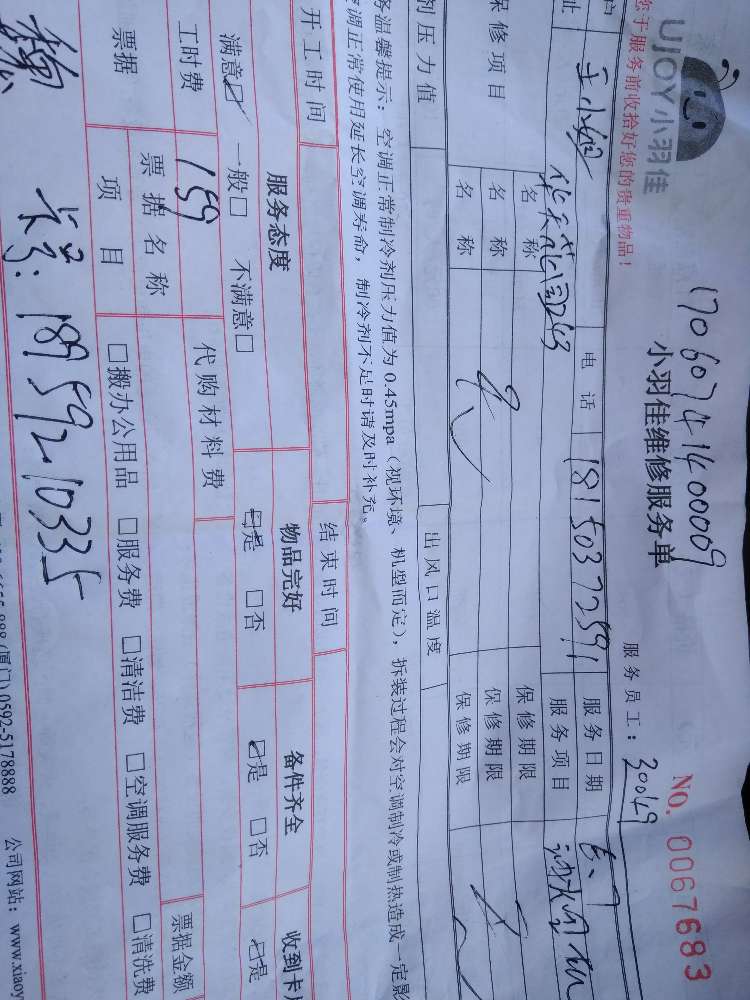 UJOY小羽佳
1706074140009
小羽佳维修服务单
No. 0067683
您于服务前收拾好您的贵重物品！
服务员工：30049
户
王小姐
电话
18150372591
服务日期
6.7
址
花园243
服务项目
保修项目
名称
保修期限
名称
保修期限
名称
保修期限
剂压力值
出风口温度
务温馨提示：空调正常制冷剂压力值为0.45mpa（视环境、机型而定），拆装过程会对空调制冷或制热造成一定影
空调正常使用延长空调寿命，制冷剂不足时请及时补充。
开工时间
结束时间
服务态度
物品完好
备件齐全
收到卡片
满意☑ 一般□ 不满意□
☑是 □否
☑是 □否
☑是
工时费
159
代购材料费
票据
票据名称
票据金额
项目
□搬办公用品 □服务费 □清洁费 □空调服务费 □清洗费
18959210335
888（厦门）0592-5178888
公司网站：www.xiaoy